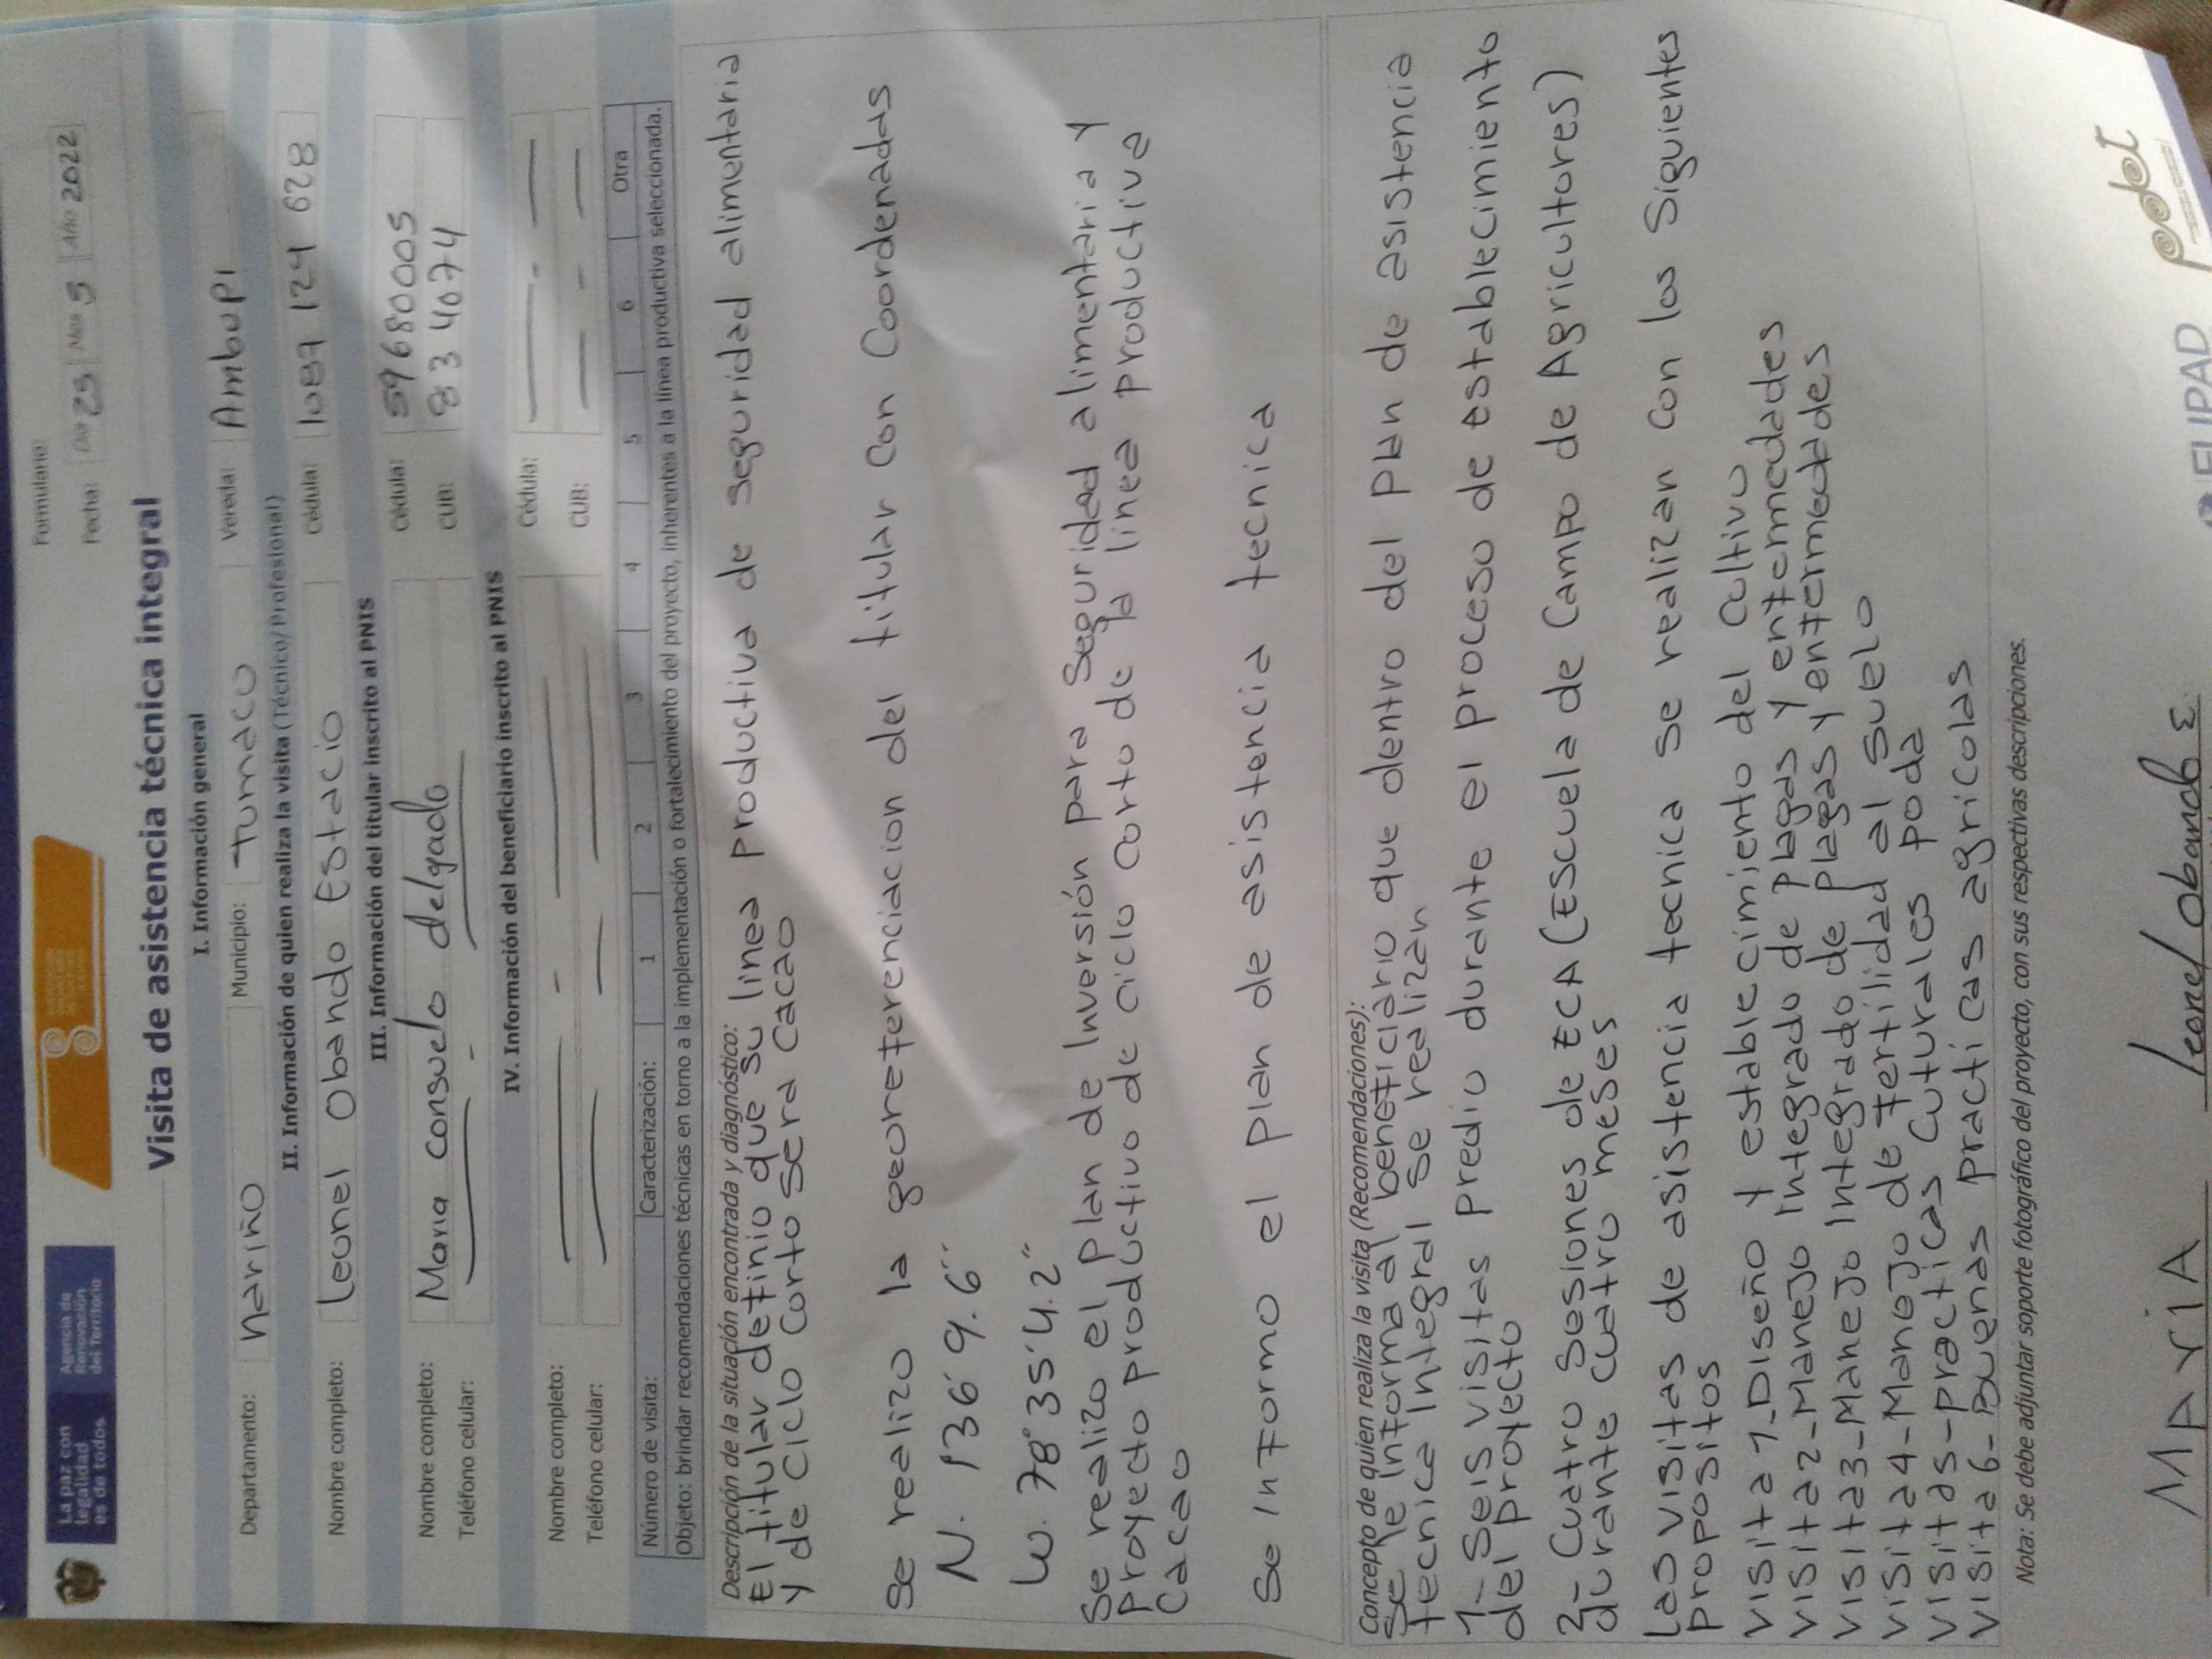 La paz con
legalidad
es de todos
Agencia de
Renovación
del Territorio
Formulario:
Fecha: Día 25 Mes 5 Año 2022
Visita de asistencia técnica integral
I. Información general
Departamento: Nariño Municipio: tumaco Vereda: Ambupi
II. Información de quien realiza la visita (Técnico/Profesional)
Nombre completo: Leonel Obando Estacio Cédula: 1087 124 628
III. Información del titular inscrito al PNIS
Nombre completo: Maria consuelo delgado Cédula: 59680005
Teléfono celular: — - — CUB: 834074
IV. Información del beneficiario inscrito al PNIS
Nombre completo: — - — Cédula: — - —
Teléfono celular: — — — CUB: — - —
Número de visita: Caracterización: 1 2 3 4 5 6 Otra
Objeto: brindar recomendaciones técnicas en torno a la implementación o fortalecimiento del proyecto, inherentes a la línea productiva seleccionada.
Descripción de la situación encontrada y diagnóstico:
El titular definio que su linea productiva de seguridad alimentaria
y de ciclo corto sera cacao
Se realizo la georeferenciacion del titular con Coordenadas
N. 1°36'9.6"
W. 78°35'4.2"
Se realizo el plan de Inversión para Seguridad alimentaria y
proyecto productivo de ciclo corto de la linea productiva
Cacao
Se Informo el plan de asistencia tecnica
Concepto de quien realiza la visita (Recomendaciones):
Se le informa al beneficiario que dentro del plan de asistencia
tecnica Integral se realizan
1- Seis visitas predio durante el proceso de establecimiento
del proyecto
2- Cuatro Sesiones de ECA (Escuela de Campo de Agricultores)
durante cuatro meses
Las visitas de asistencia tecnica se realizan con los Siguientes
propositos
visita 1-Diseño y establecimiento del cultivo
visita 2-Manejo Integrado de plagas y enfermedades
visita 3-Manejo Integrado de plagas y enfermedades
visita 4-Manejo de fertilidad al suelo
visita 5-practicas cuturales poda
visita 6-Buenas practicas agricolas
Nota: Se debe adjuntar soporte fotográfico del proyecto, con sus respectivas descripciones.
MARIA
Leonel Obando E
pdet